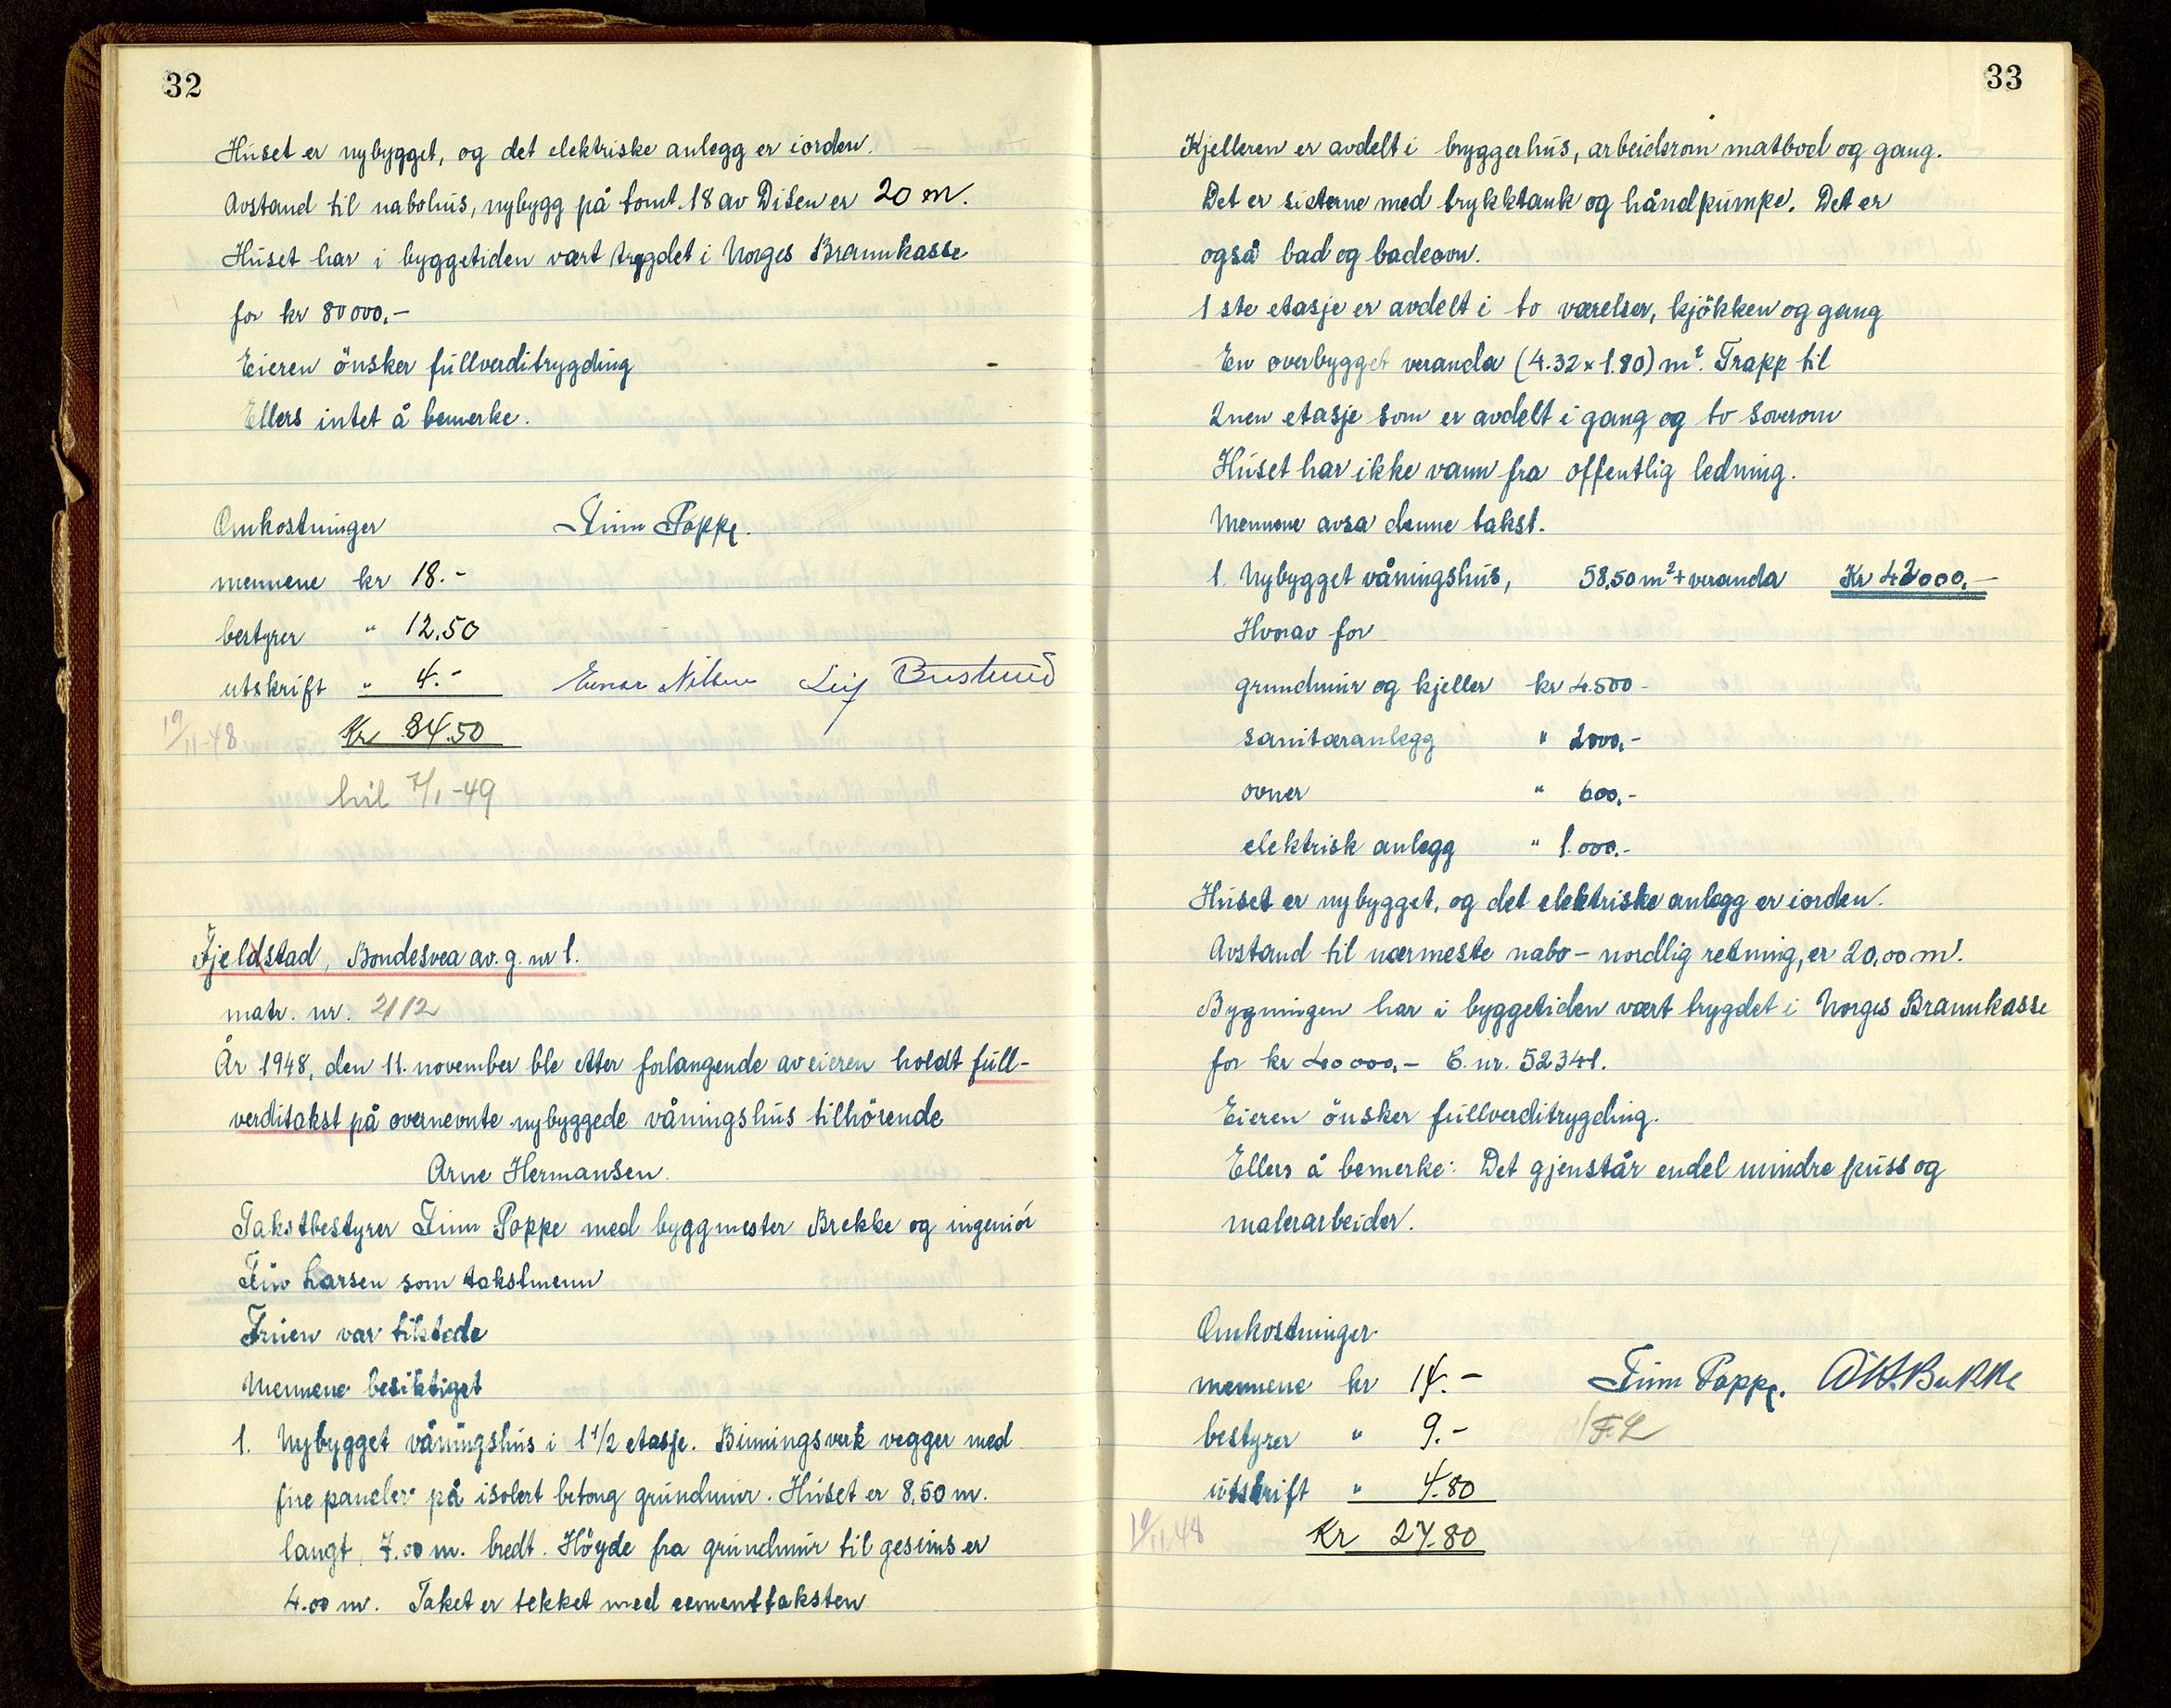 32
Huset er nybygget, og det elektriske anlegg er iorden.
Avstand til nabohus, nybygg på tomt 18 av Disen er 20 m.
Huset har i byggetiden vært trygdet i Norges Brannkasse
for kr 80000,-
Eieren önsker fullverditrygding
Ellers intet å bemerke.
Omkostninger Finn Poppe.
mennene kr 18.-
bestyrer " 12.50
utskrift " 4.- Einar Nilsen Leif
19/11-48 Kr 34.50
hil 7/1-49
Fjeldstad, Bondesvea av. g. nr 1.
matr. nr. 2112
År 1948, den 11. november ble etter forlangende av eieren holdt full-
verditakst på overnevnte nybyggede våningshus tilhörende
Arne Hermansen.
Takstbestyrer Finn Poppe med byggmester Brekke og ingeniör
Finn Larsen som takstmenn
Fruen var tilstede
Mennene besiktiget
1. Nybygget våningshus i 1 1/2 etasje. Binningsverk vegger med
fire paneler på isolert betong grundmur. Huset er 8,50 m.
langt, 7.00 m. bredt. Höyde fra grundmur til gesims er
4.00 m. Taket er tekket med sementtaksten
33
Kjelleren er avdelt i bryggerhus, arbeidsrom matbod og gang.
Det er sisterne med trykktank og håndpumpe. Det er
også bad og badeovn.
1 ste etasje er avdelt i to værelser, kjökken og gang
En overbygget veranda (4.32 x 1.80) m². Trapp til
2nen etasje som er avdelt i gang og to soverom
Huset har ikke vann fra offentlig ledning.
Mennene avsa denne takst.
1. Nybygget våningshus, 58,50 m² + veranda Kr 42000,-
Hvorav for
grundmur og kjeller kr 4.500-
sanitæranlegg " 2000,-
ovner " 600,-
elektrisk anlegg " 1.000.-
Huset er nybygget, og det elektriske anlegg er iorden.
Avstand til nærmeste nabo - nordlig retning, er 20,00 m.
Bygningen har i byggetiden vært trygdet i Norges Brannkasse
for kr 40000,- B. nr. 52341.
Eieren önsker fullverditrygding.
Ellers å bemerke: Det gjenstår endel mindre puss og
malerarbeider.
Omkostninger
mennene kr 14.- Finn Poppe.
bestyrer " 9.- F. L
utskrift " 4.80
19/11.48 Kr 27.80